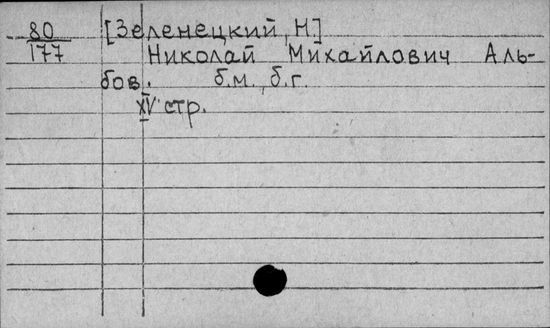 80 [Зеленецкий, Н]
177 Николай Михайлович Аль-
бов. б.м., б.г.
XIV стр.